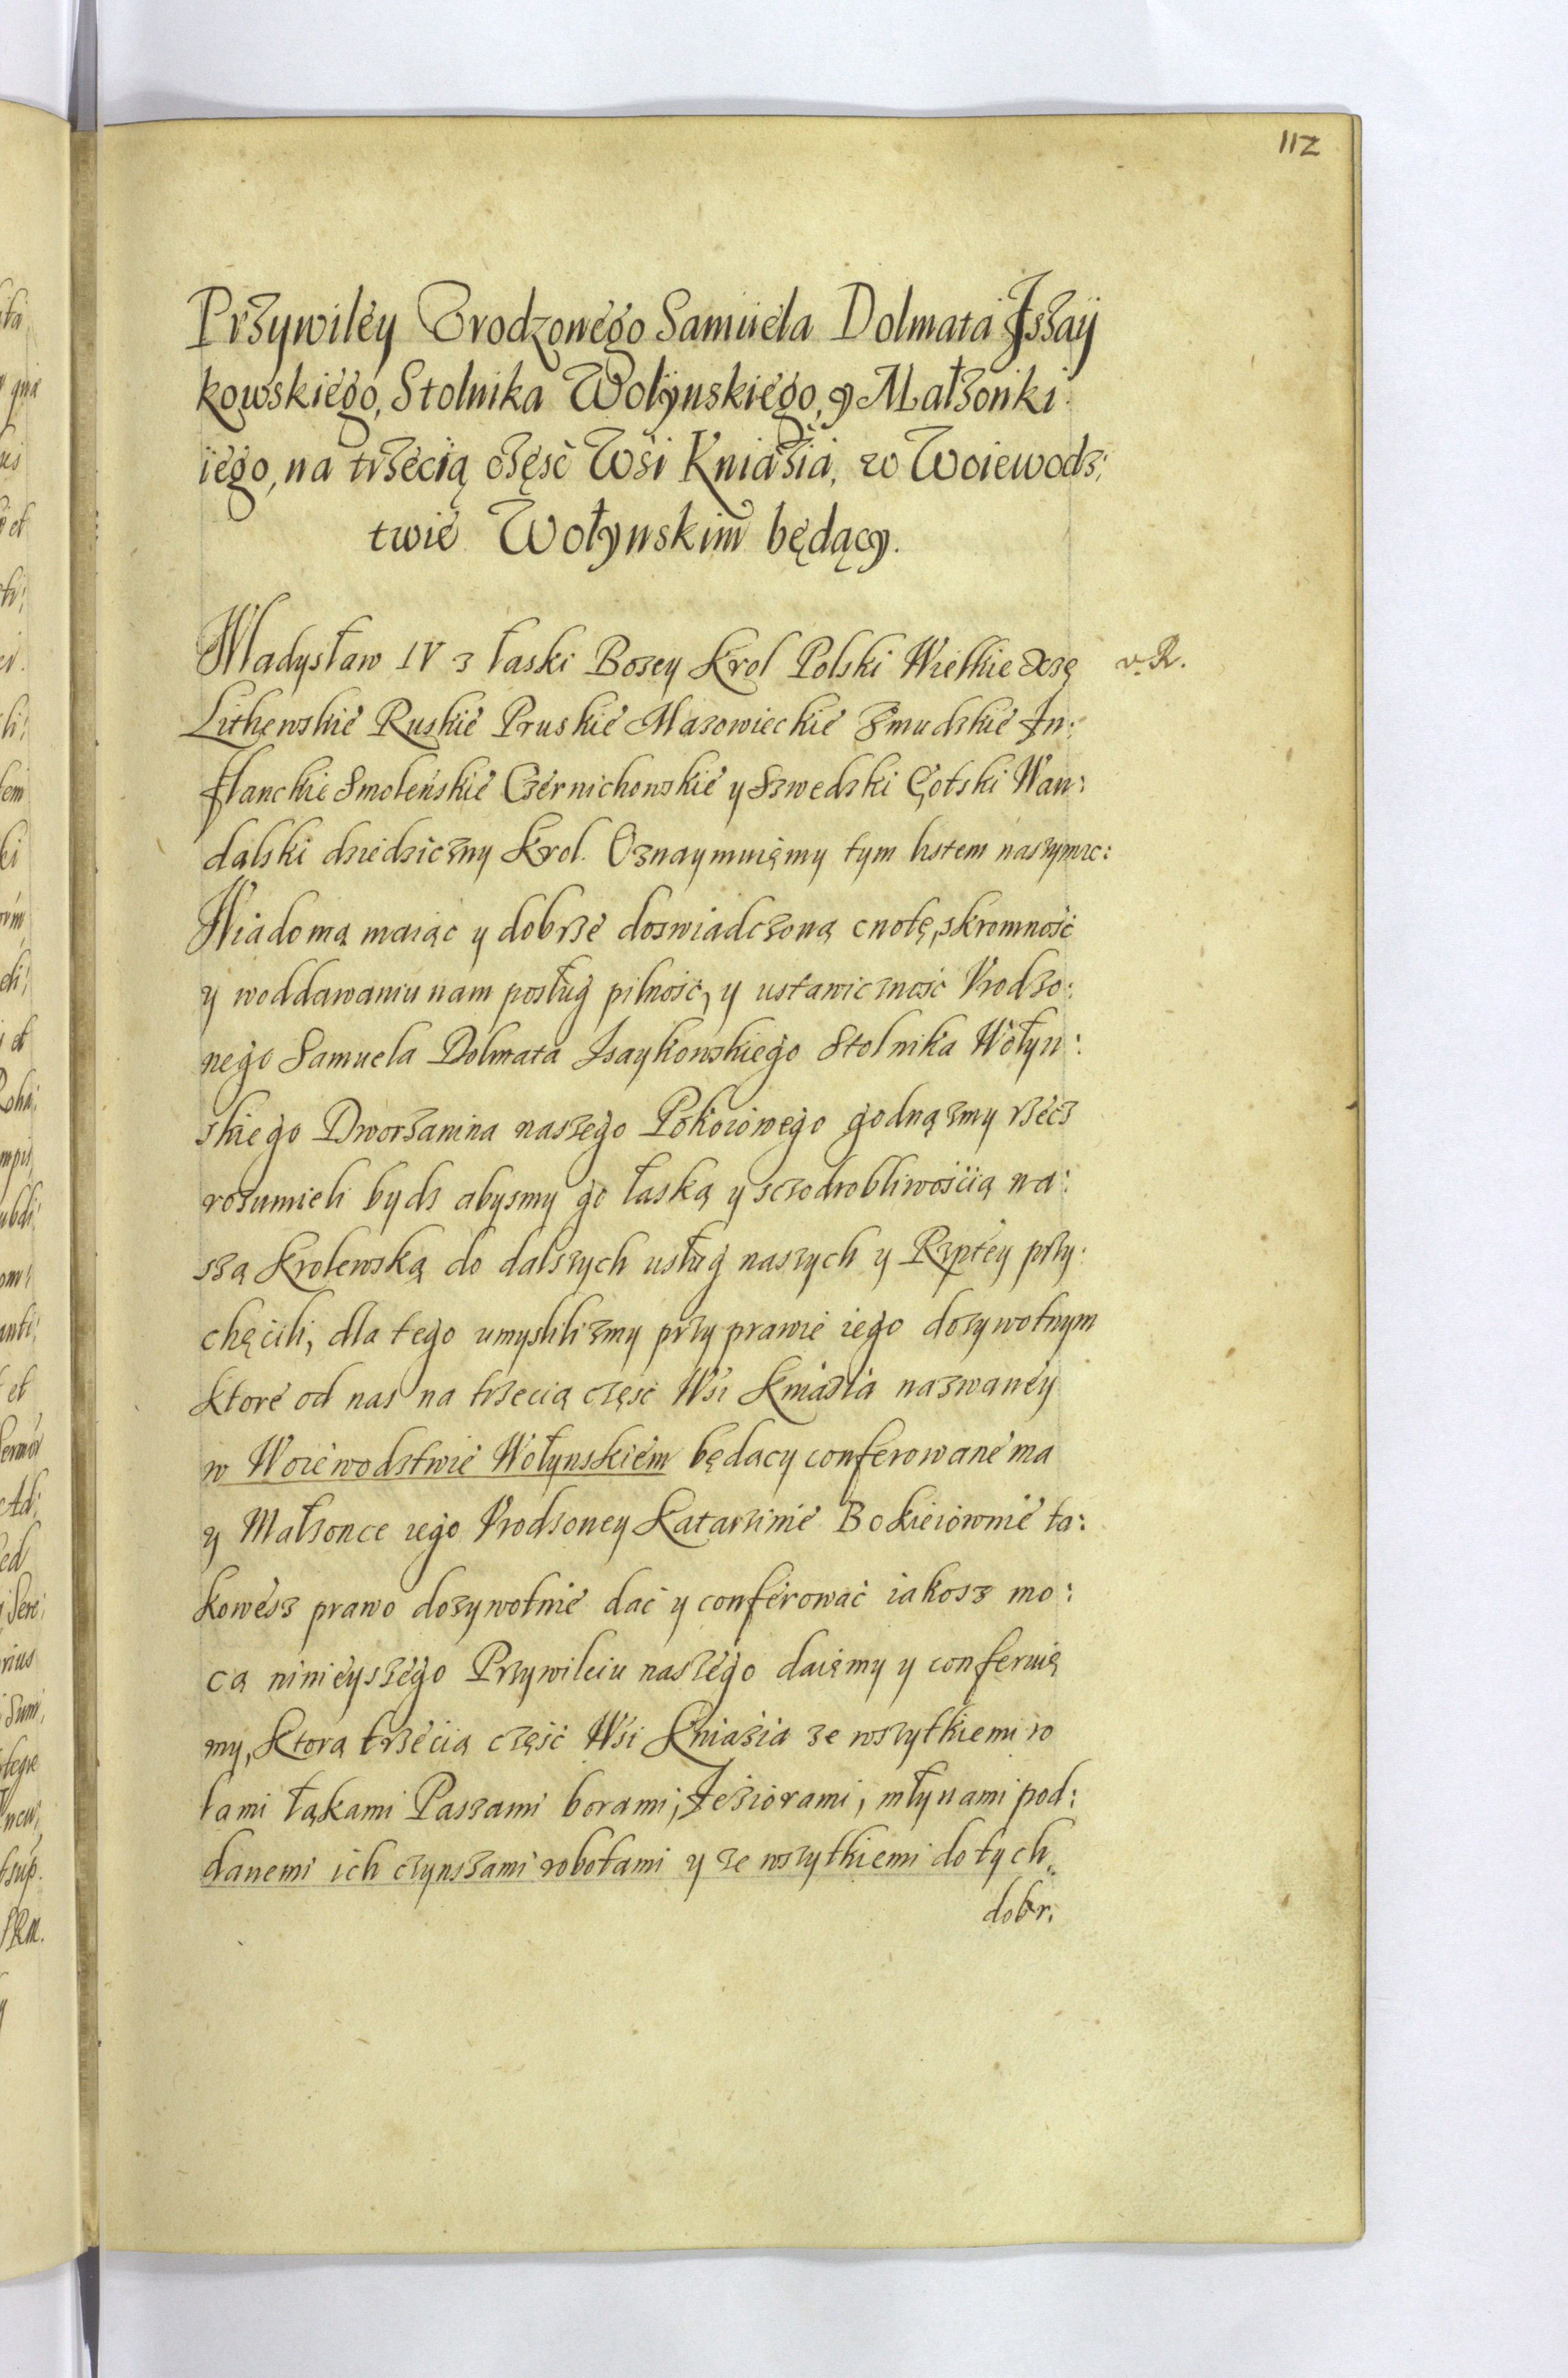 112
Przywiley Vrodzonego Samuela Dolmata Jszay
kowskiego, Stolnika Wołynskiego, y Małzonki
iego, na trzecią częsc Wsi Kniazia, w Woiewodz:
twie Wołynskim będący.
Władysław IV z łaski Bozey Krol Polski Wielkie Xzę v. R.
Lithewskie Ruskie Pruskie Mazowieckie Zmudzkie Jn:
flanckie Smoleńskie Czernichowskie y Szwedzki Gotski Wan:
dalski dziedziczny Krol. Oznaymuięmy tym listem naszym ec:
Wiadomą maiąc y dobrze doswiadczoną cnotę, skromność
y woddawaniu nam posług pilność, y ustawiczność Vrodzo:
nego Samuela Dolmata Jsaykowskiego Stolnika Wołyn:
skiego Dworzanina naszego Pokoiowego godnązmy rzecz
rozumieli bydz abysmy go łaską y sczodrobliwością na:
szą Krolewską do dalszych usług naszych y Rzptey przy:
chęcili, dla tego umyslilizmy przy prawie iego dozywotnym
ktore od nas na trzecią częsc Wsi Kniazia nazwaney
w Woiewodztwie Wołynskiem będacy conferowane ma
y Małzonce iego Vrodzoney Katarzinie Bokieiownie ta:
kowesz prawo dozywotnie dać y conferować iakosz mo:
cą ninieyszego Przywileiu naszego daięmy y conferuię
my, Ktora trzecią część Wśi Kniazia ze wszytkiemi ro
lami łąkami Paszami borami, Jeziorami, młynami pod:
danemi ich czynszami robotami y ze wszytkiemi do tych
dobr: